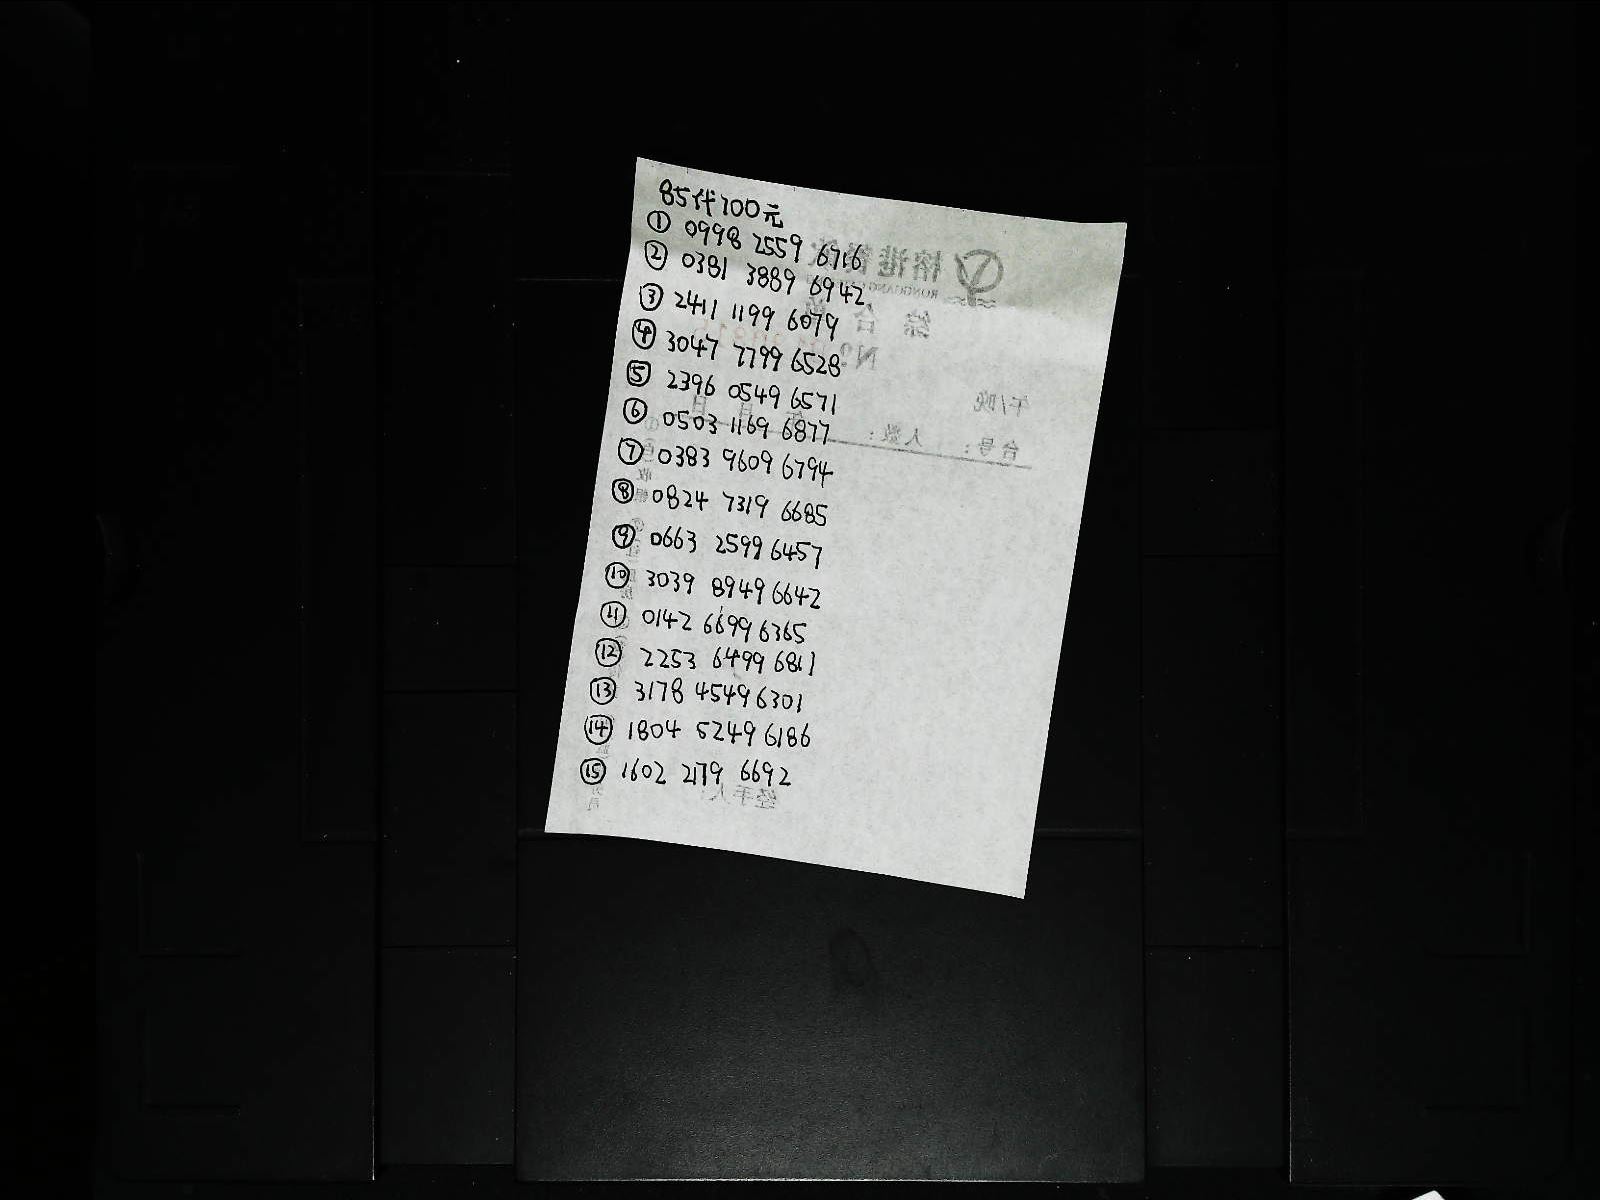 85代100元
① 0998 2559 6716
② 0381 3889 6942
③ 2411 1199 6079
④ 3047 7799 6528
⑤ 2396 0549 6571
⑥ 0503 1169 6877
⑦ 0383 9609 6794
⑧ 0824 7319 6685
⑨ 0663 2599 6457
⑩ 3039 8949 6642
⑪ 0142 6699 6365
⑫ 2253 6499 6811
⑬ 3178 4549 6301
⑭ 1804 5249 6186
⑮ 1602 2179 6692
榕港餐饮
综合单
No
午/晚
台号: 人数: 年 月 日
经手人: